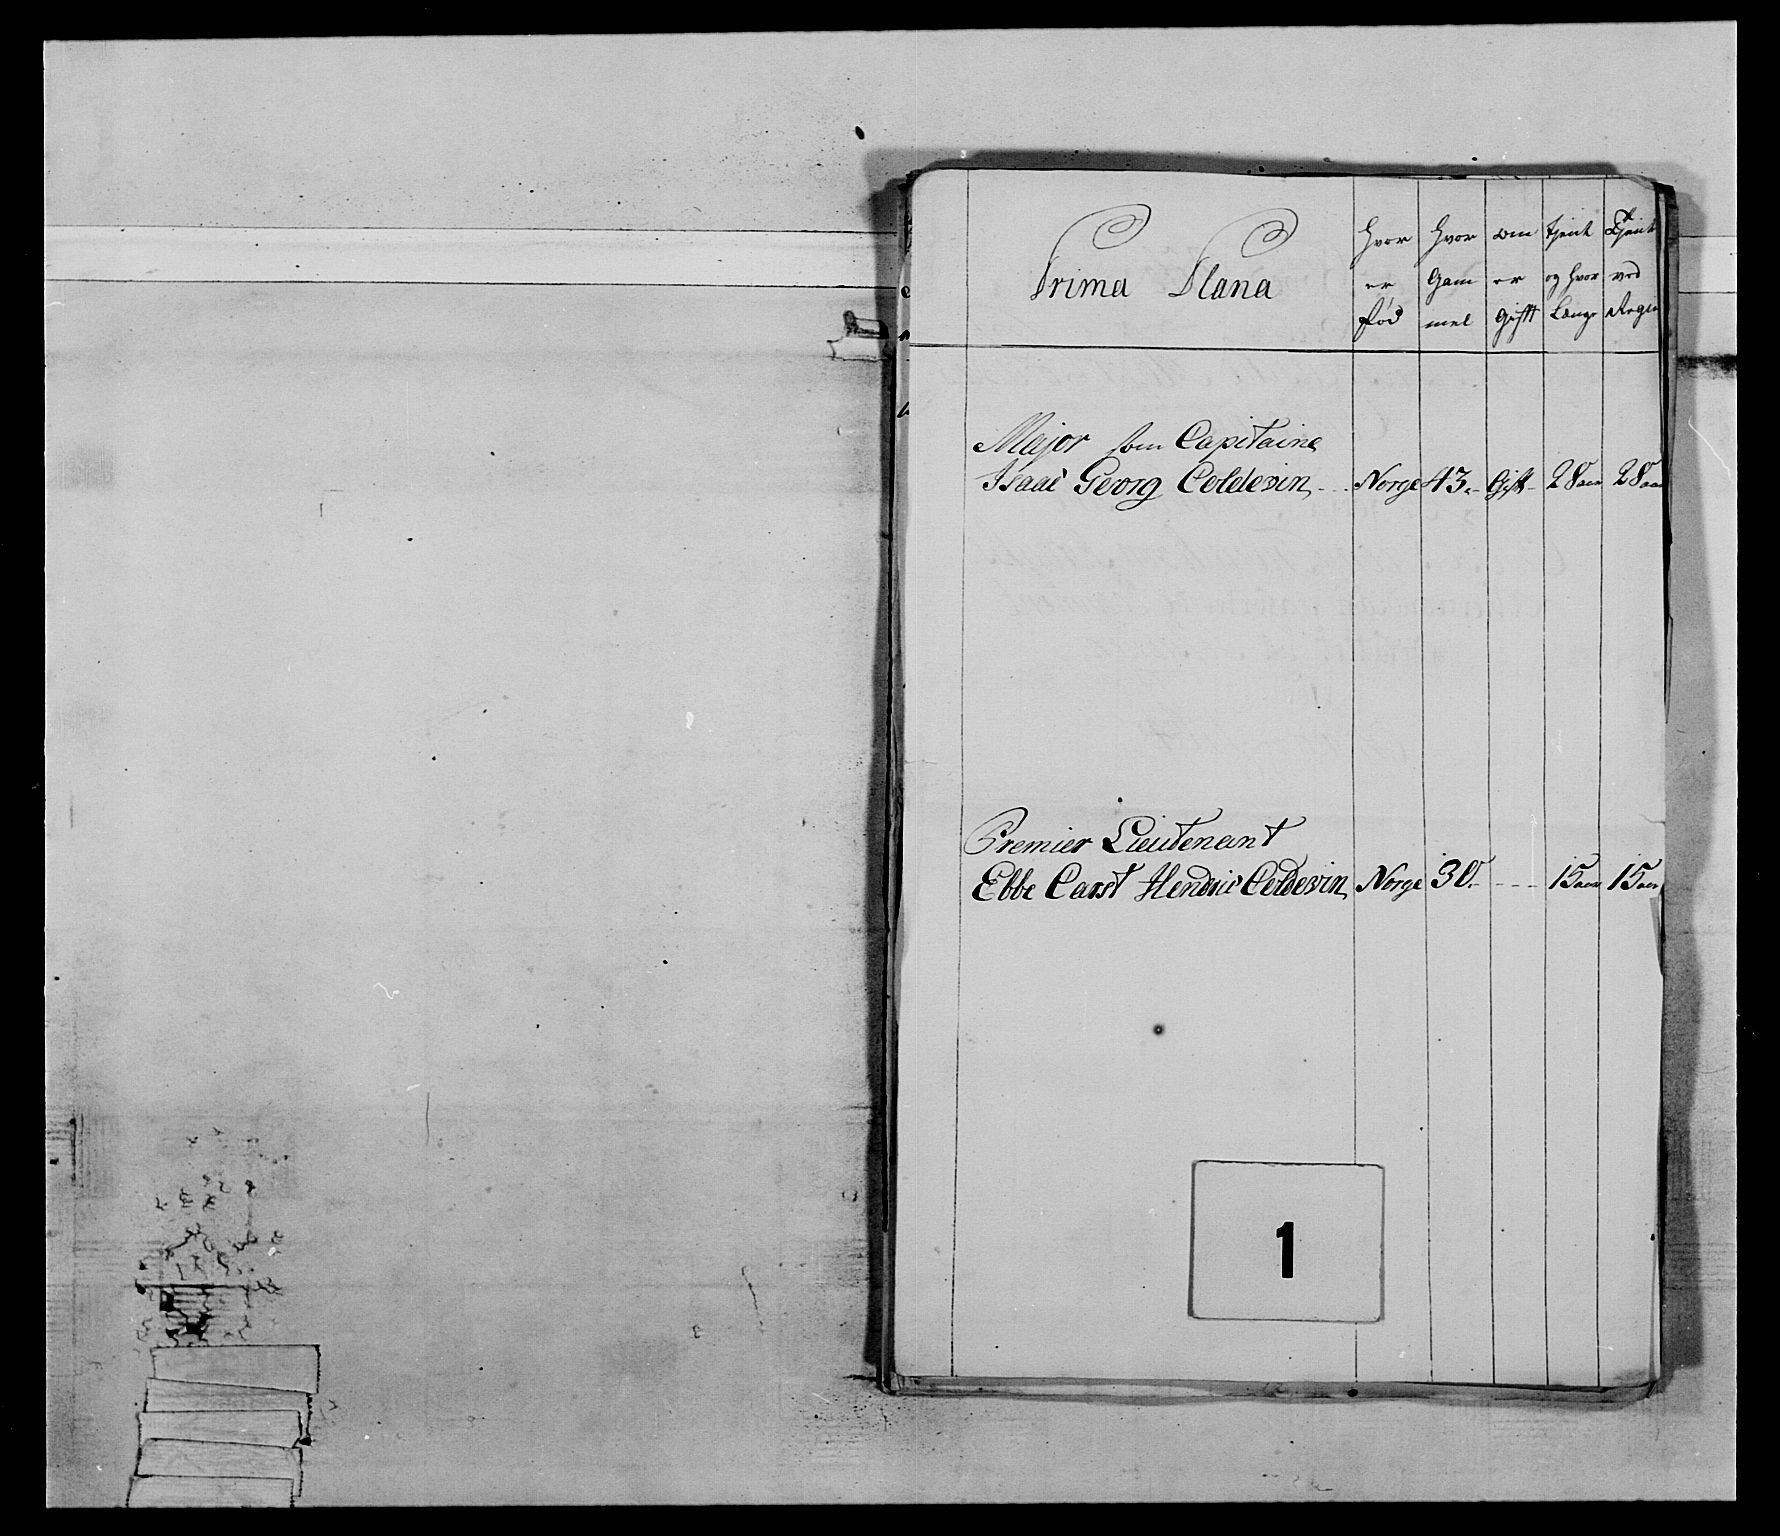 Prima Plana
Hvor er fød
Hvor Gam mel
om er Gift
tjent og hvor Længe
Tjent ved Regim
Major som Capitaine
Isaac Georg Coldevin Norge 43 Gift 28 aar 28 aar
Premier Lieutenant
Ebbe Carst Hendric Coldevin Norge 30 15 aar 15 aar
1